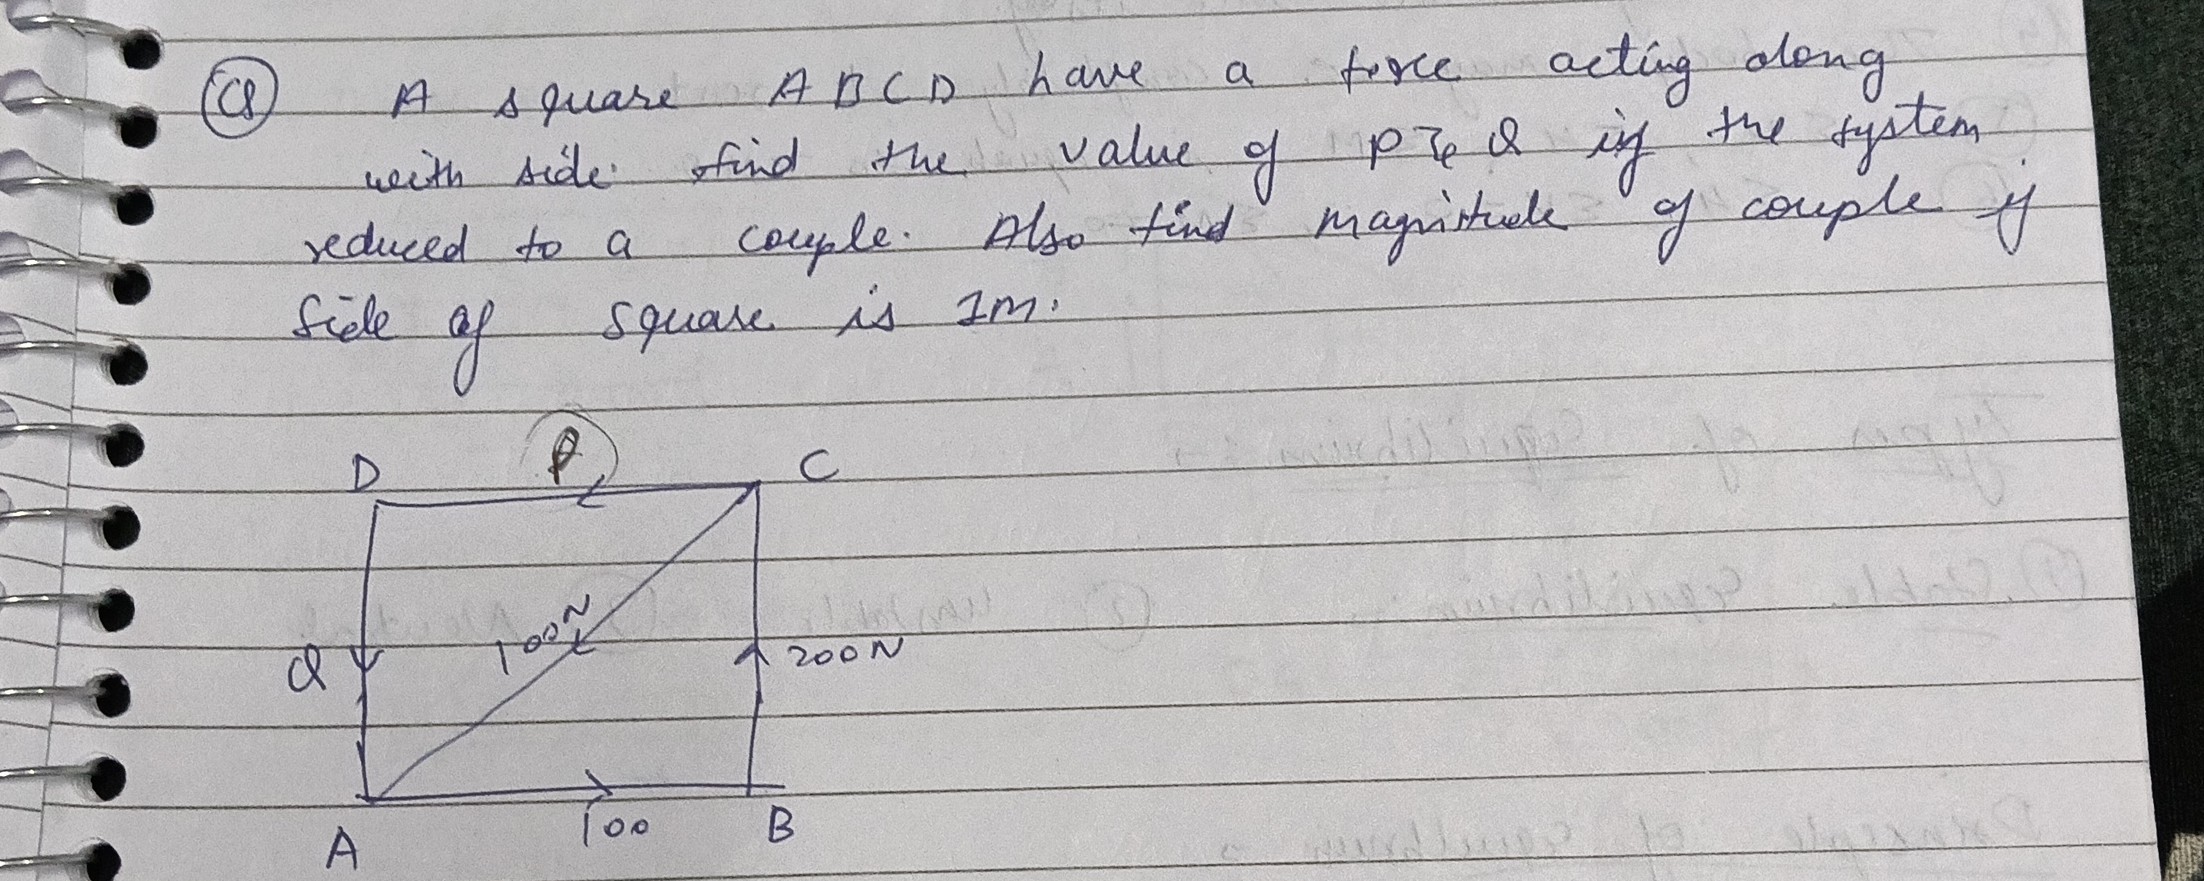 Q A square ABCD have a force acting along
with side. find the value of P & Q if the system
reduced to a couple. Also find magnitude of couple if
side of square is 1m.
D P C
100N
Q 200N
A 100 B